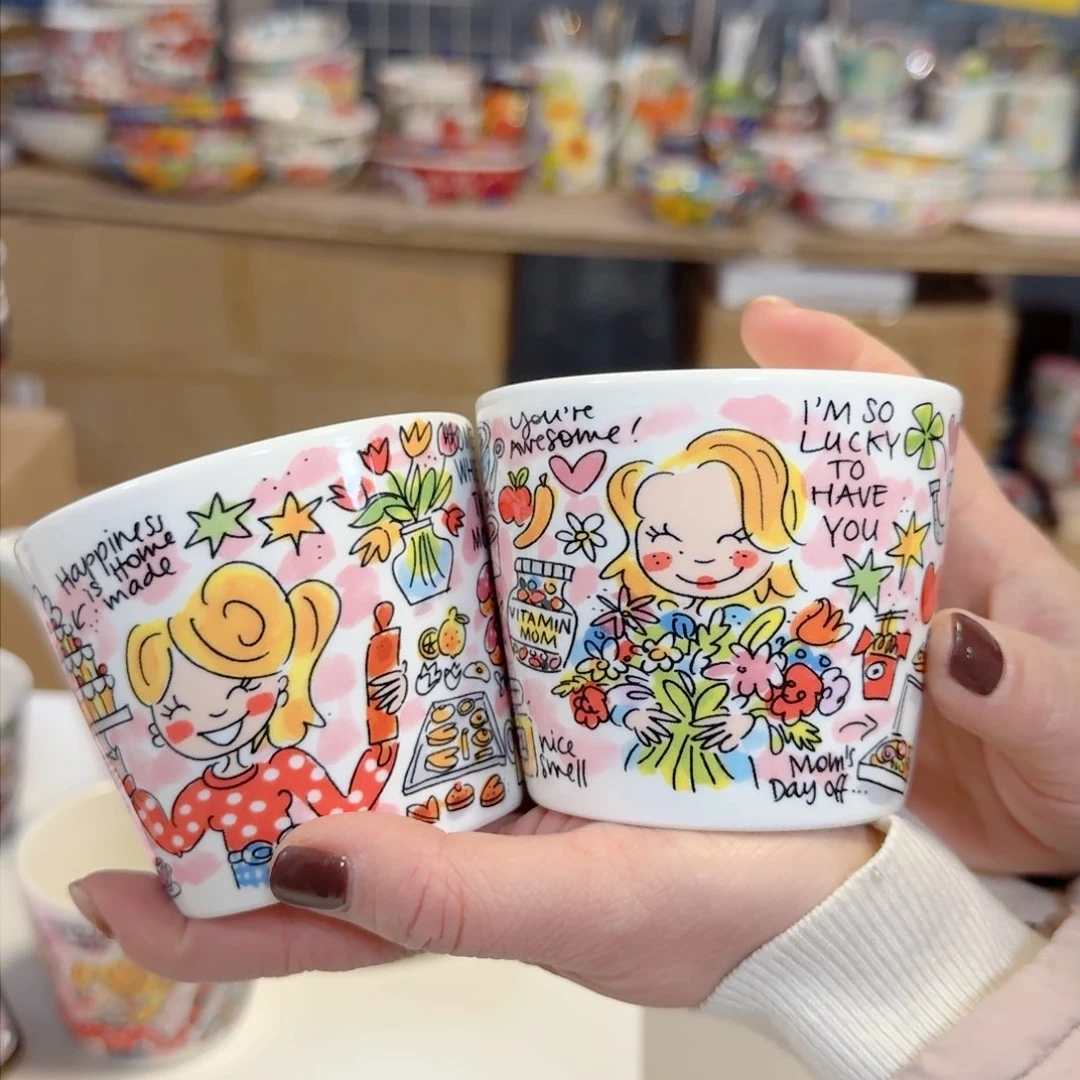 Happiness
is Home
made
You're
Awesome!
I'M SO
LUCKY
TO
HAVE
YOU
VITAMIN
MOM
nice
smell
Mom's
Day off...